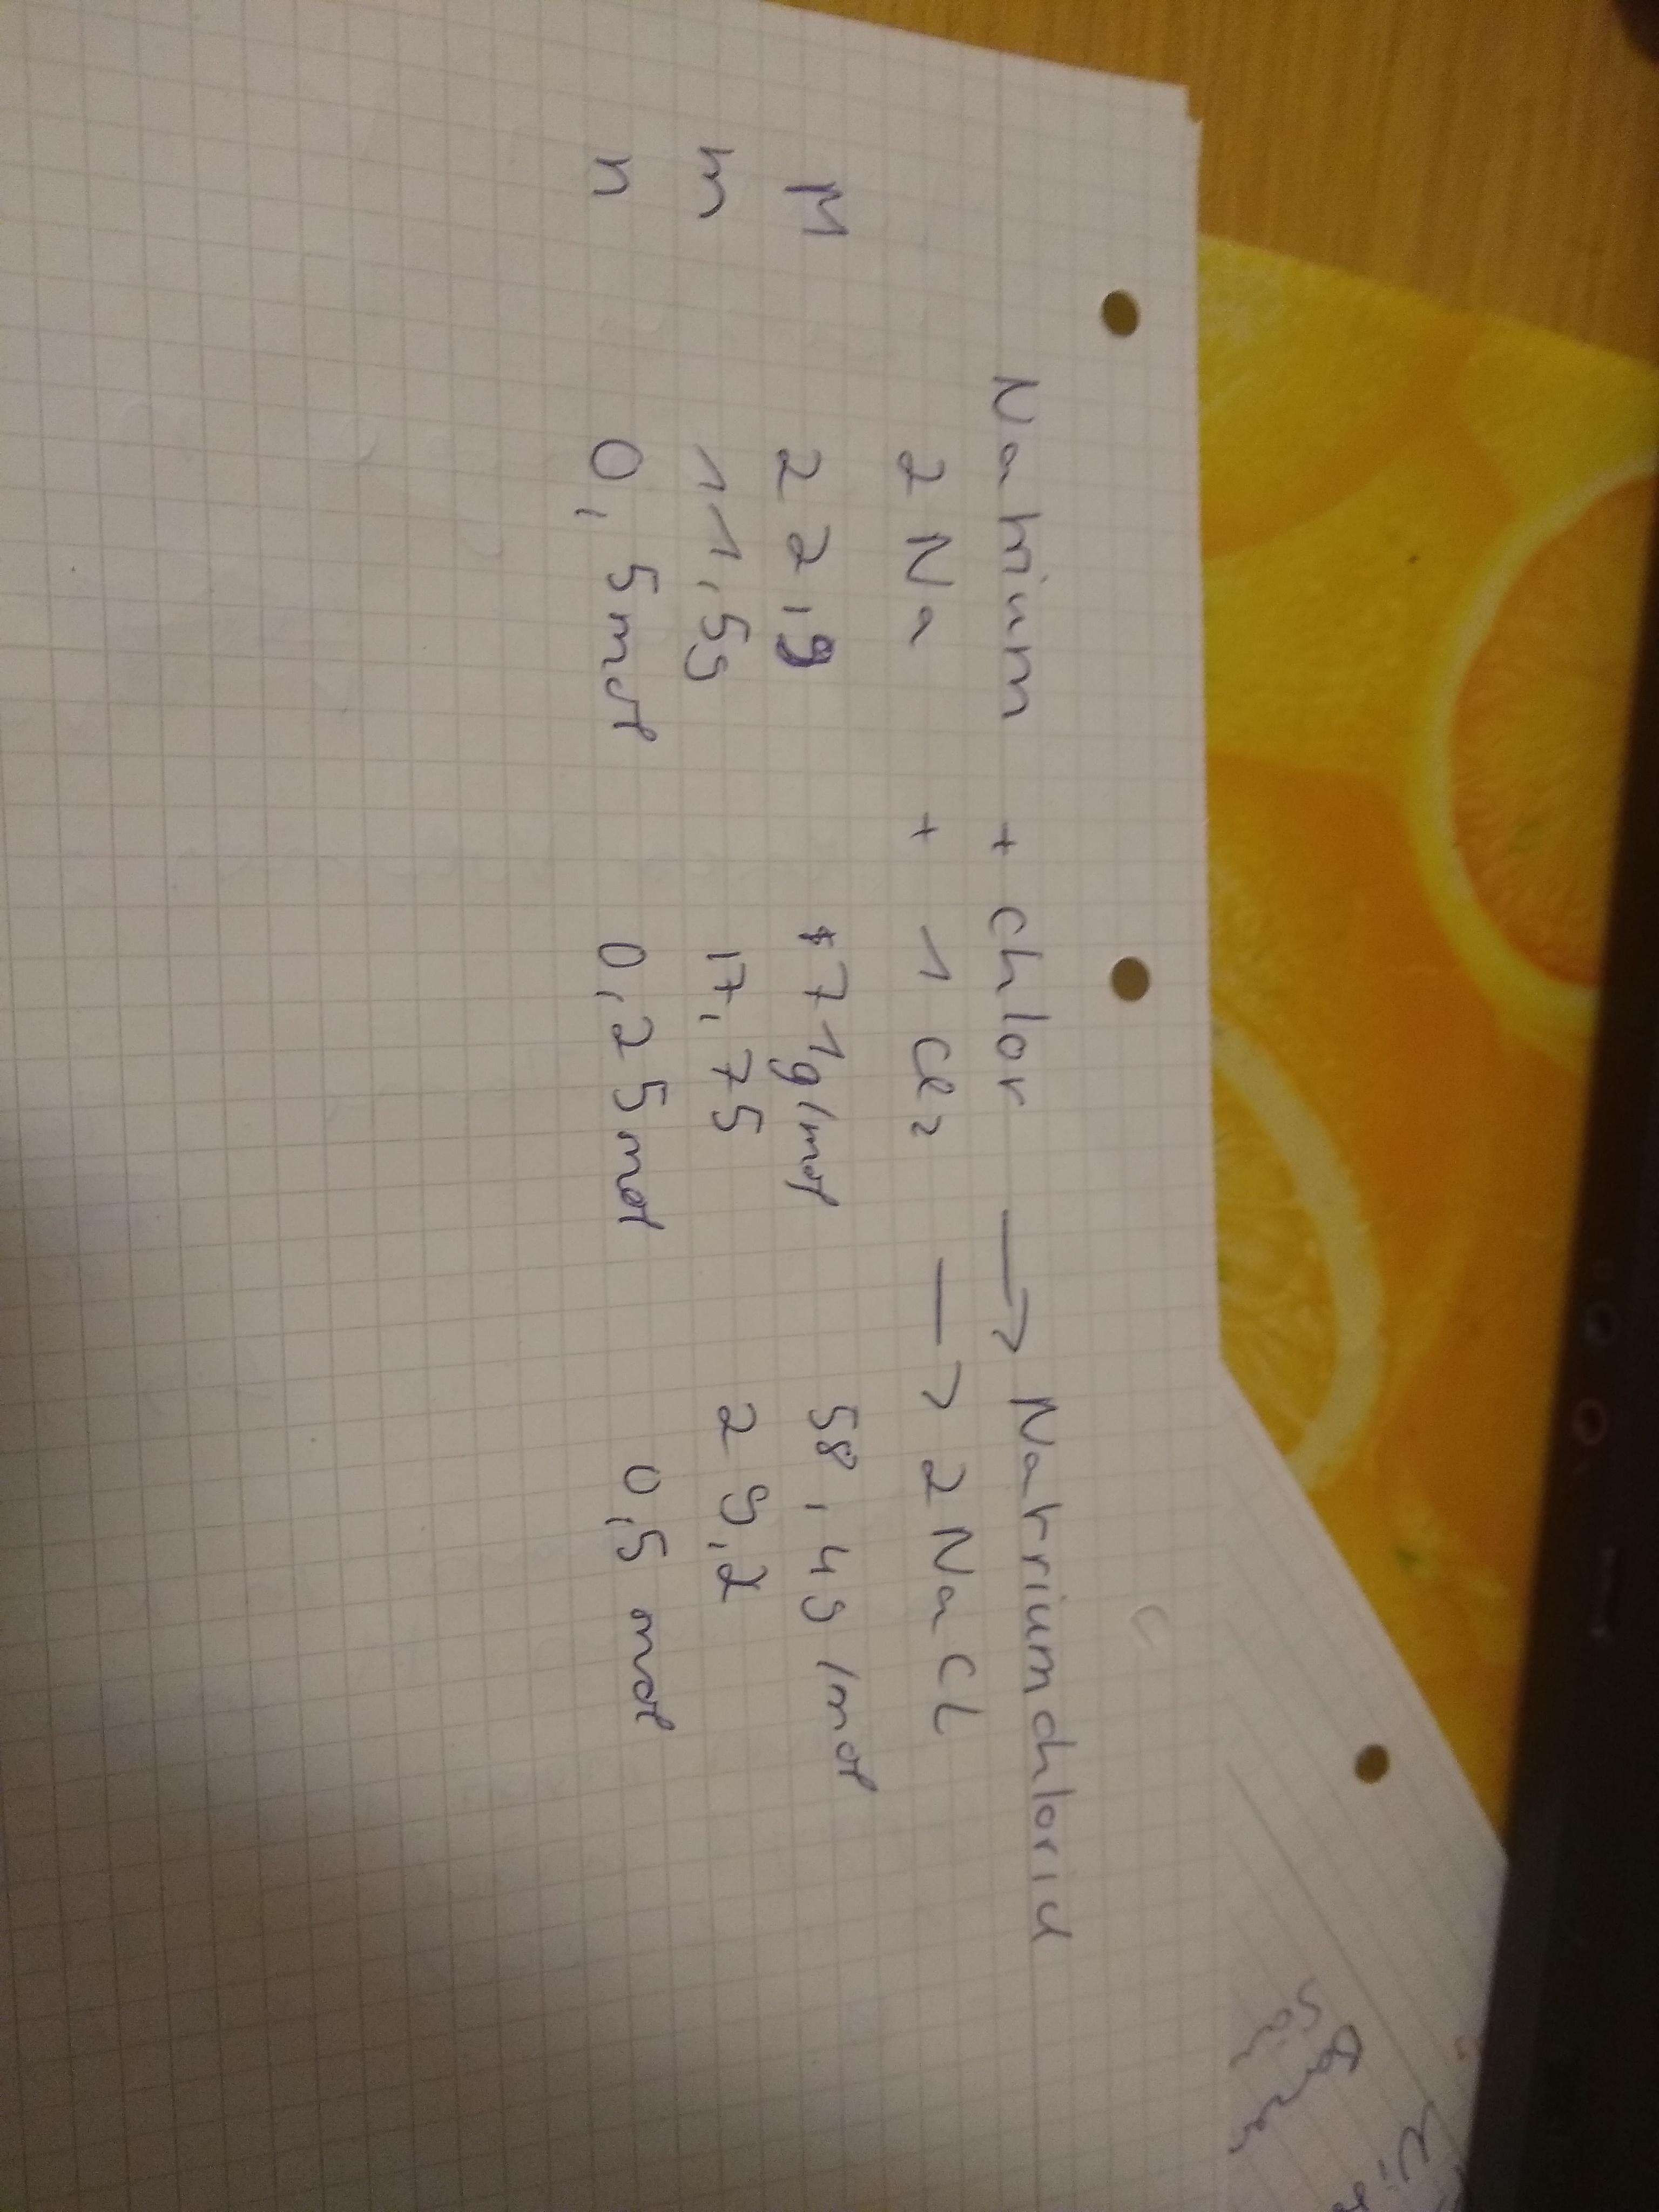 Natrium + chlor → Natriumchlorid
2 Na + 1 Cl₂ → 2 NaCl
M 22,9 71g/mol 58,4g/mol
m 11,5g 17,75 29,2
n 0,5mol 0,25mol 0,5 mol